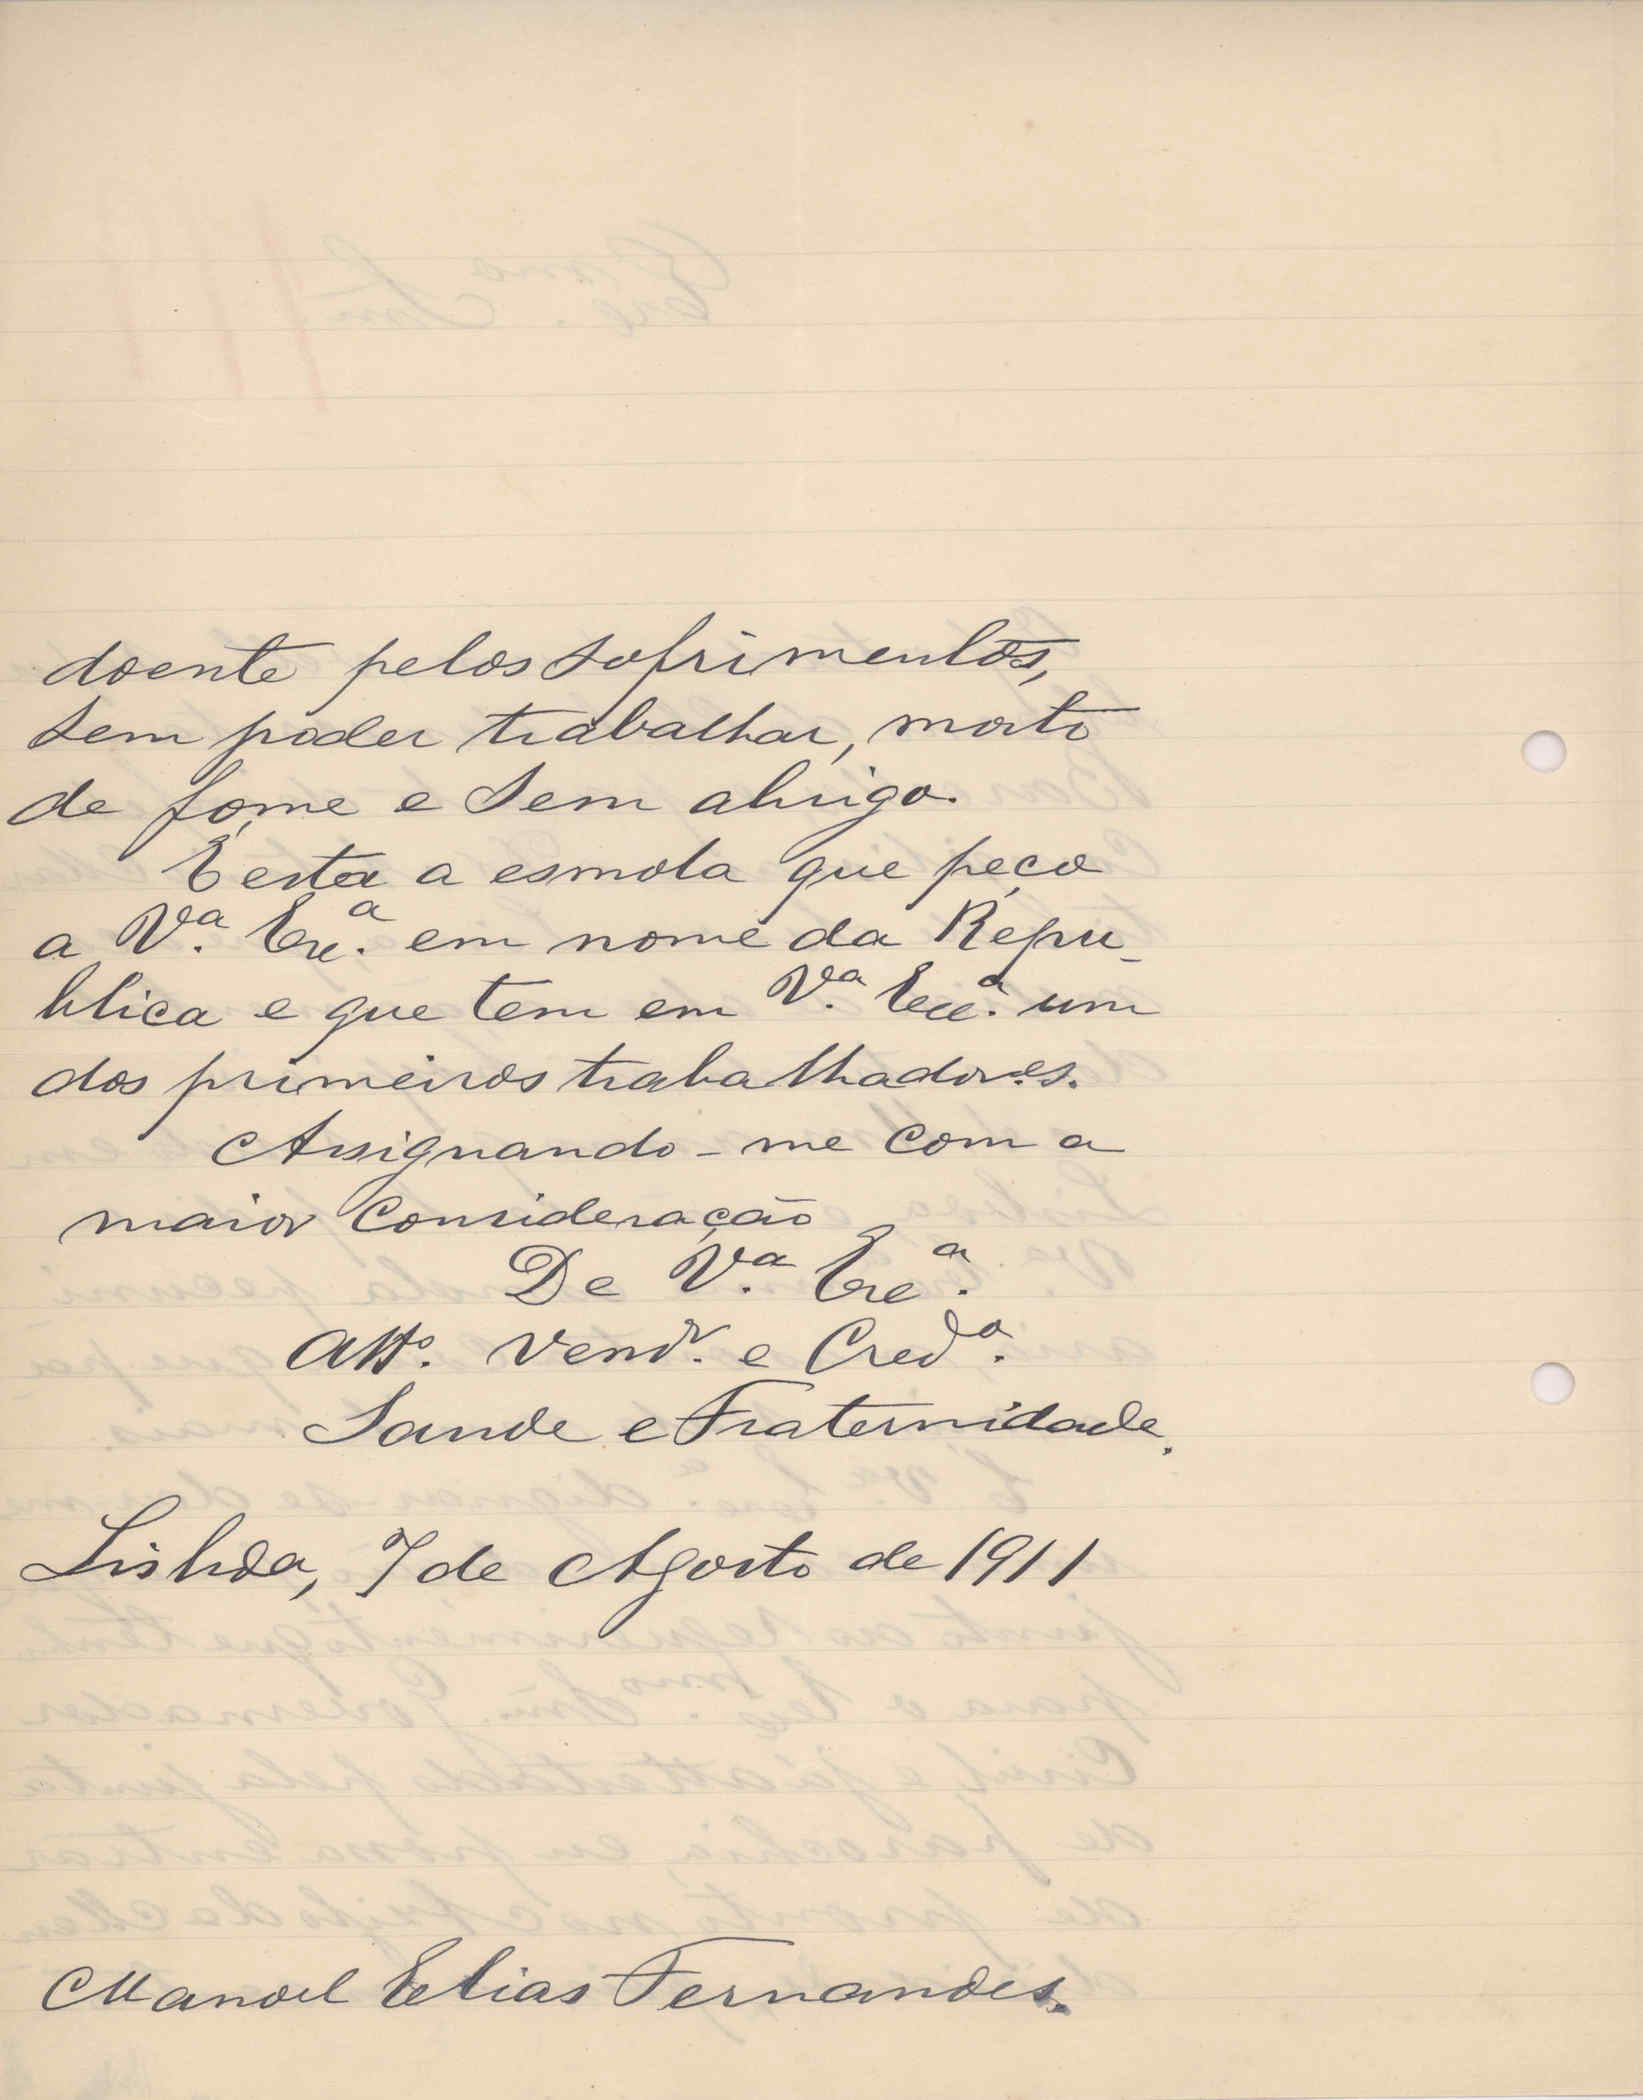 doente pelos sofrimentos,
sem poder trabalhar, morto
de fome e sem abrigo.
É esta a esmola que peço
a V.ª Exc.ª em nome da Repu-
blica e que tem em V.ª Exc.ª um
dos primeiros trabalhadores.
Assignando-me com a
maior Consideração
De V.ª Exc.ª
Att.º Vend.r e Cred.º
Saude e Fraternidade.
Lisboa, 7 de Agosto de 1911
Manoel Elias Fernandes.